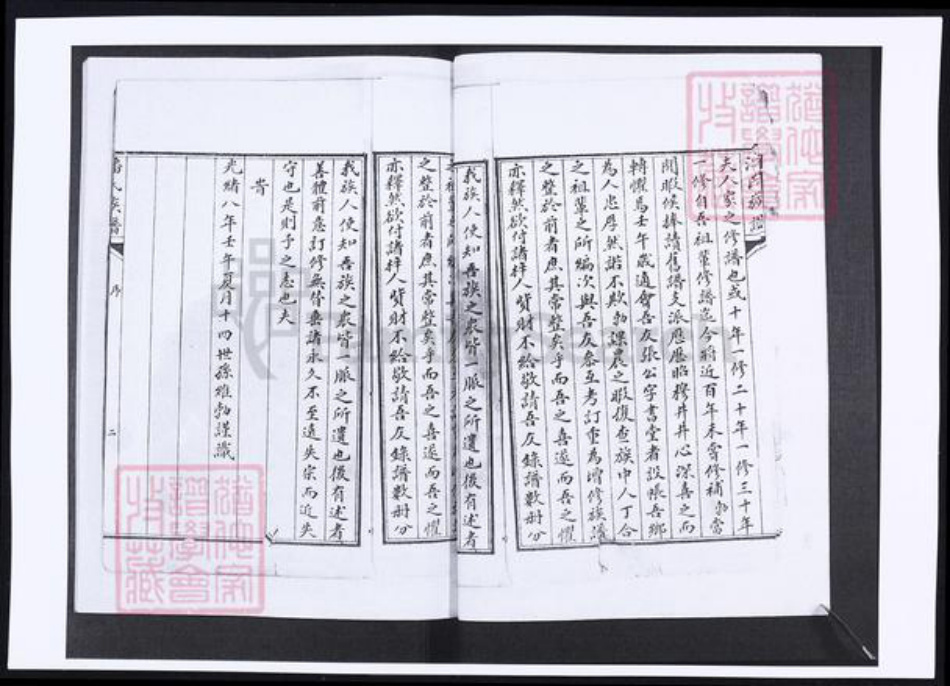 夫人家之修譜也或十年一修二十年一修三十年
一修自吾祖輩修譜迄今將近百年未嘗修補勃當
閒暇候捧讀舊譜支派應歷昭穆井井心深善之而
轉懼焉壬午歲適會吾友張公字書堂者設帳吾鄉
為人忠厚然諾不欺勃課農之暇復查族中人丁合
之祖輩之所編次與吾友參互考訂重為增修族譜
之整於前者庶其常整矣乎而吾之喜遂而吾之懼
亦釋然欲付諸梓人貲財不給敬請吾友錄譜數册分
我族人使知吾族之衆皆一脈之所遺也後有述者
之整於前者庶其常整矣乎而吾之喜遂而吾之懼
亦釋然欲付諸梓人貲財不給敬請吾友錄譜數册分
我族人使知吾族之衆皆一脈之所遺也後有述者
善體前意訂修無替垂諸永久不至遠失宗而近失
守也是則予之志也夫
旹
光緒八年壬午夏月十四世孫維勃謹識
氏族譜
序
二